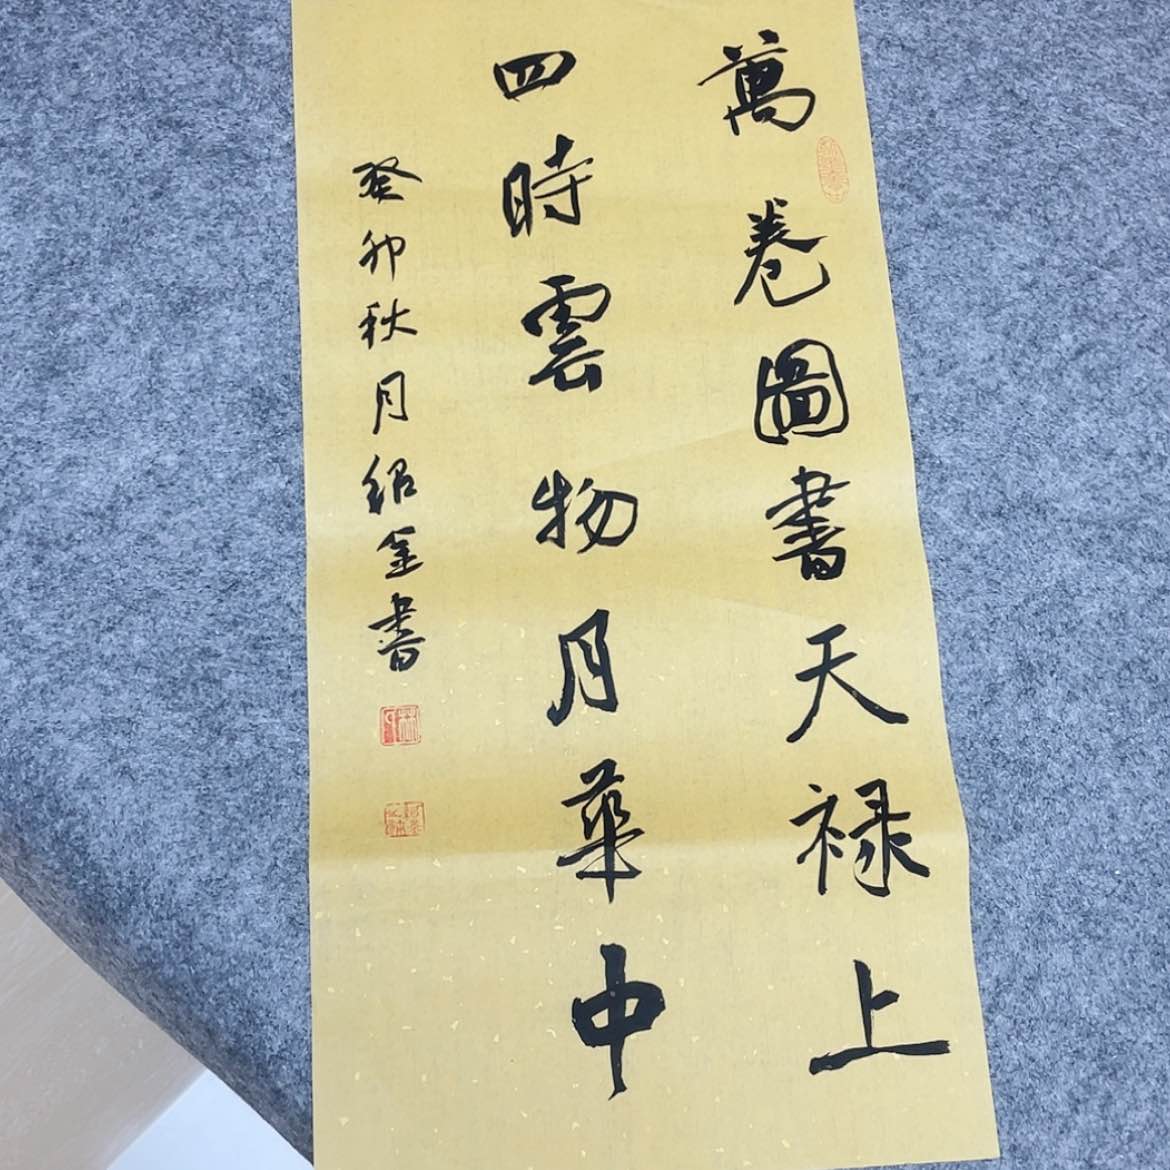 萬卷圖書天禄上
四時雲物月華中
癸卯秋月紹金書